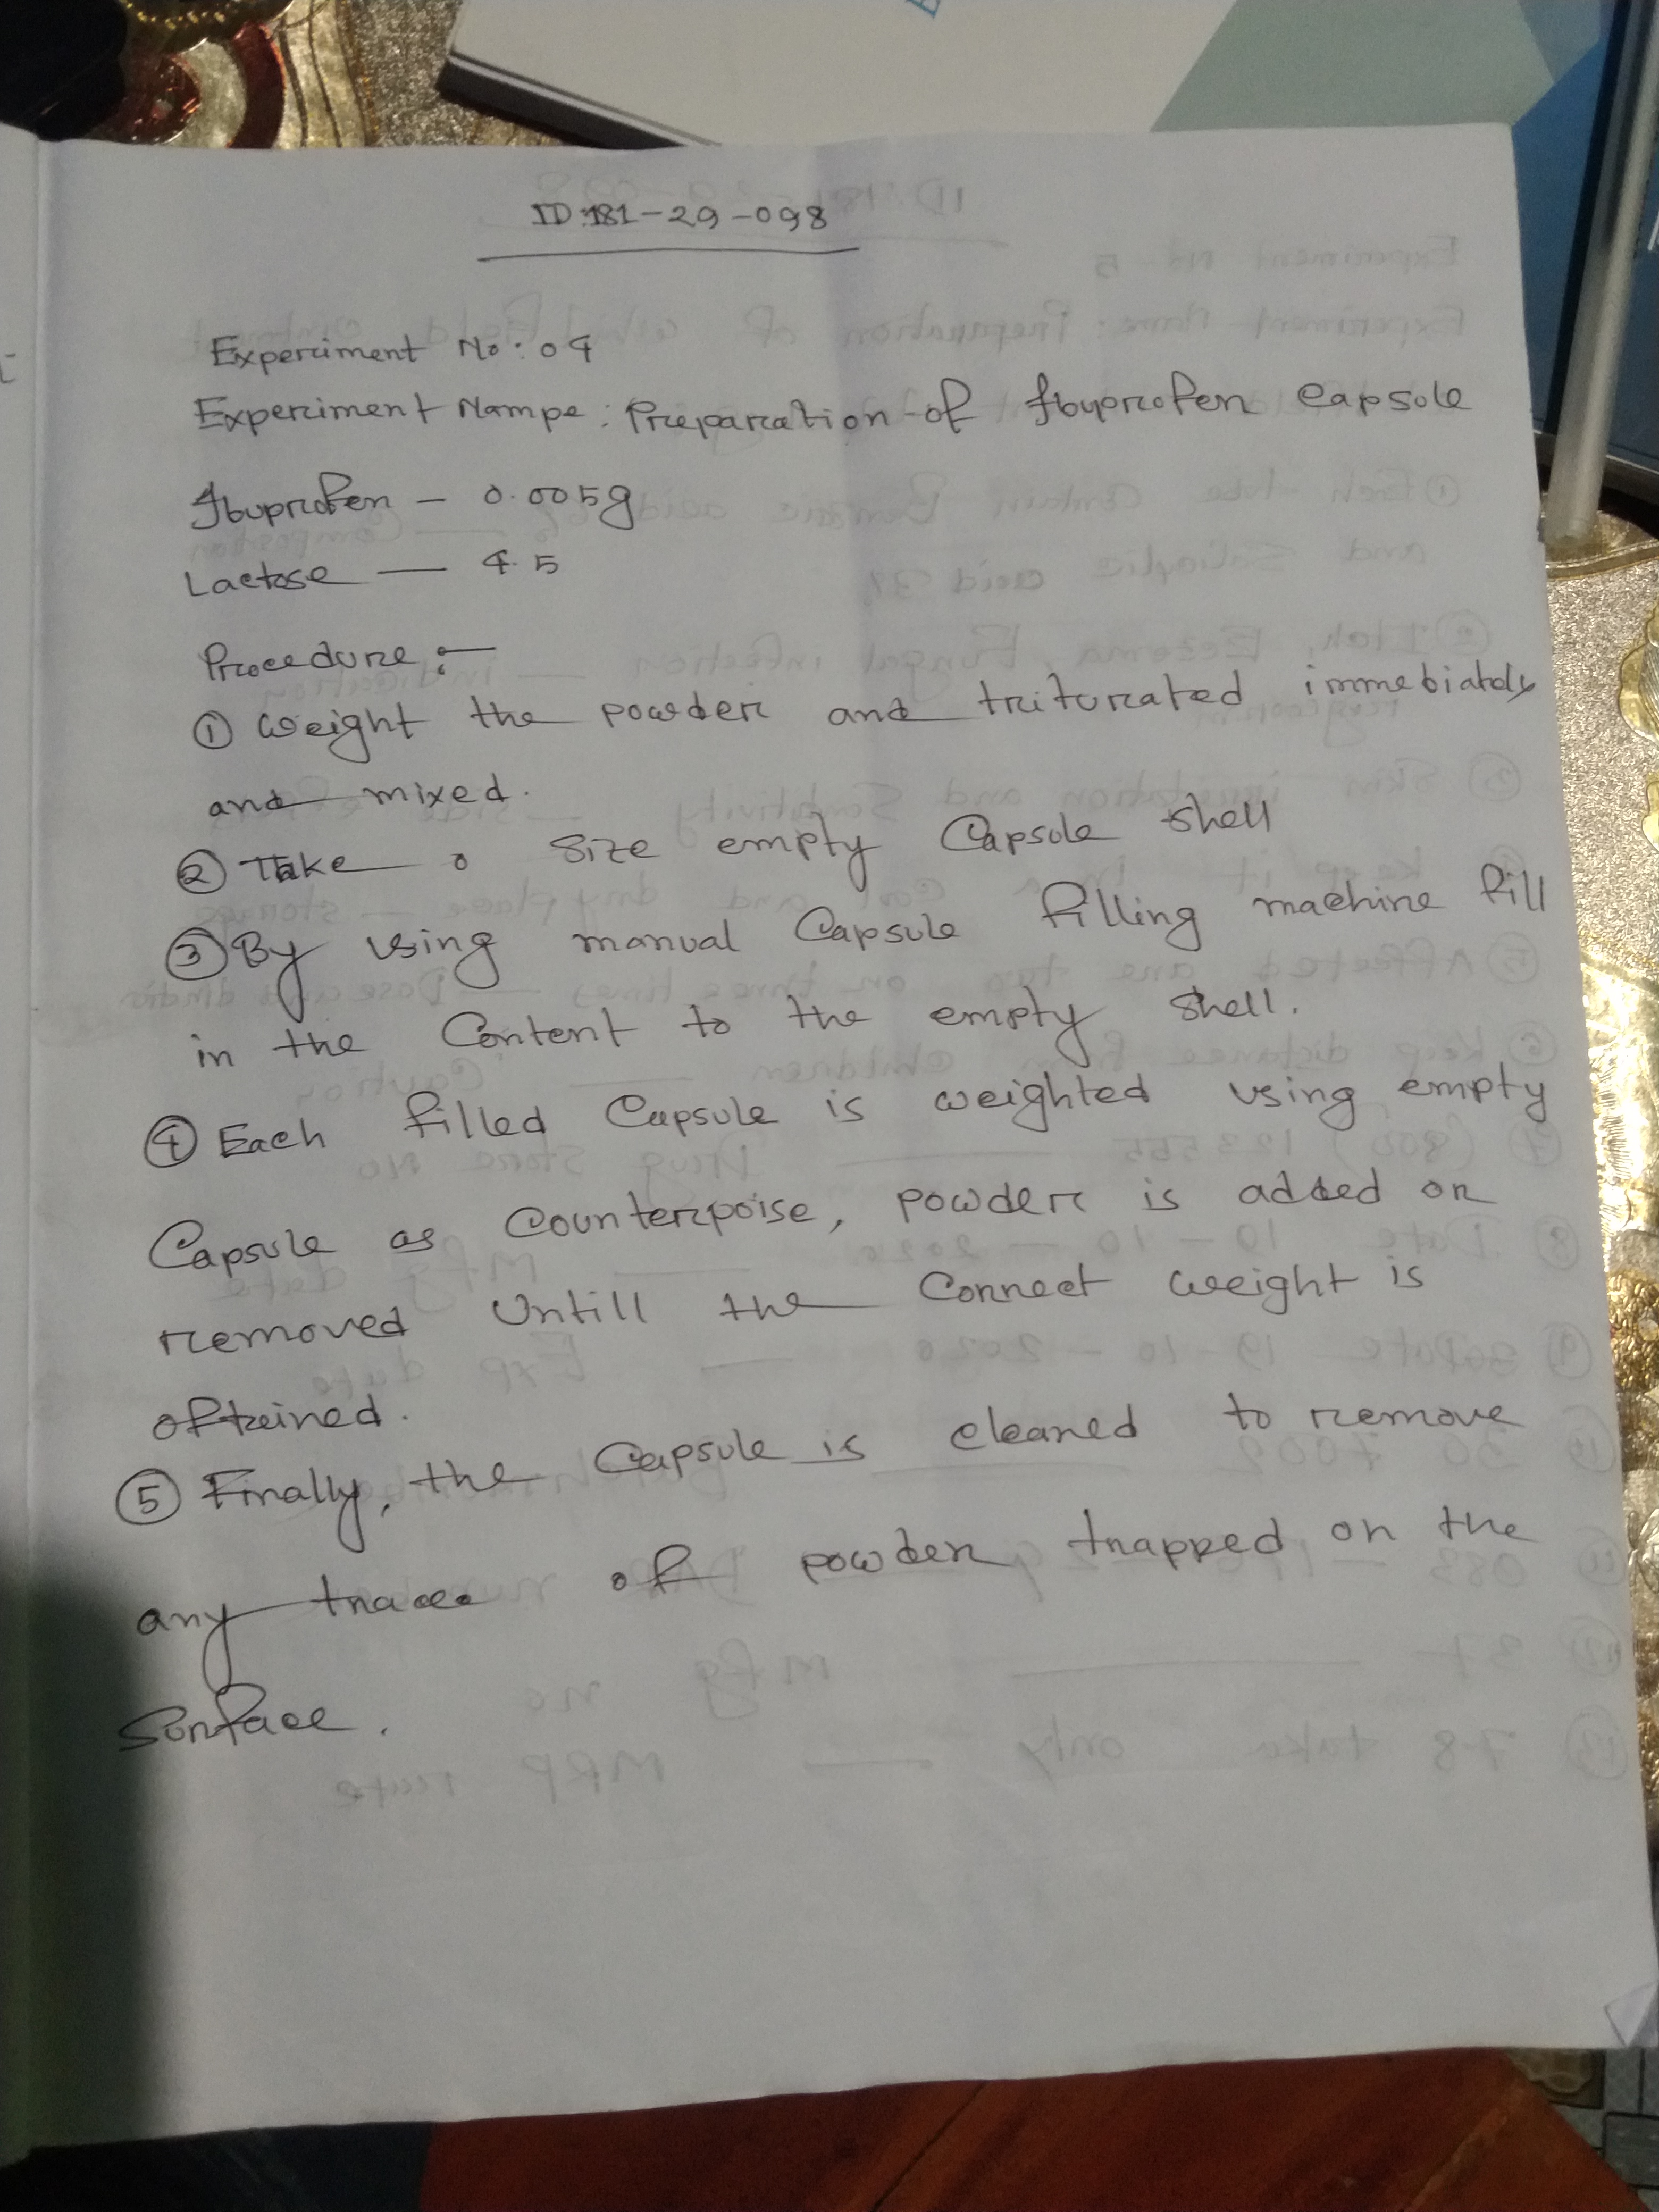 ID:181-29-098
Experiment No: 04
Experiment Nampe: Preparation of Ibuprofen Capsole
Ibuprofen - 0.005g
Lactose — 4.5
Procedure :-
① Weight the powder and triturated immebiatdy
and mixed.
② Take 0 Size empty Capsule shell
③ By using manual Capsule filling machine fill
in the Content to the empty shell.
④ Each filled Capsule is weighted using empty
Capsule as Counterpoise, powder is added or
removed Untill the Correct weight is
oftained.
⑤ Finally, the Capsule is cleaned to remove
any trace of powder trapped on the
Surface.